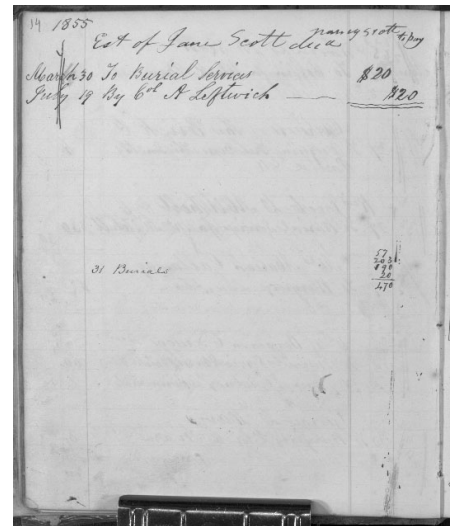 14 1855
Est of Jane Scott decd nancy Scott to pay
March 30 To Burial Services $20
July 19 By Col A Leftwich $20
31 Burial
57
203
190
20
470